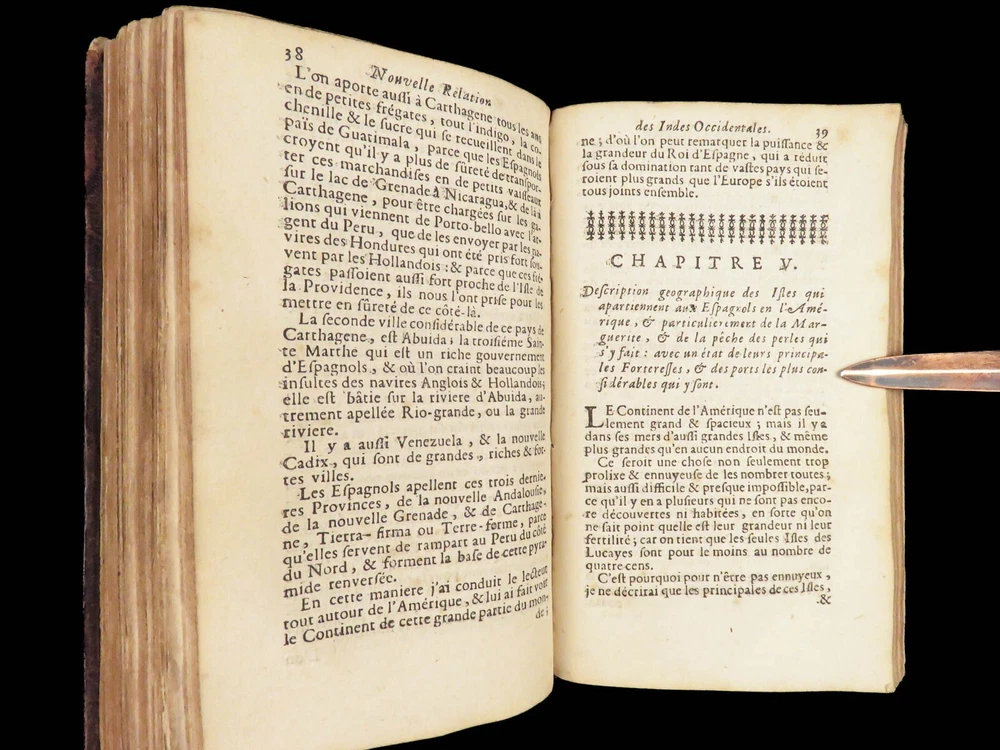 38
Nouvelle Rélation
L'on aporte aussi à Carthagene tous les ans
en de petites frégates, tout l'indigo, la co-
chenille & le sucre qui se recueillent dans le
païs de Guatimala, parce que les Espagnols
croyent qu'il y a plus de sûreté de transpor-
ter ces marchandises en de petits vaisseaux
sur le lac de Grenade à Nicaragua, & de là à
Carthagene, pour être chargées sur les ga-
lions qui viennent de Porto-bello avec l'ar-
gent du Peru, que de les envoyer par les na-
vires des Hondures qui ont été pris fort sou-
vent par les Hollandois: & parce que ces fré-
gates passoient aussi fort proche de l'Isle de
la Providence, ils nous l'ont prise pour les
mettre en sûreté de ce côté-là.
La seconde ville considérable de ce païs de
Carthagene, est Abuida; la troisiéme Sain-
te Marthe qui est un riche gouvernement
d'Espagnols, & où l'on craint beaucoup les
insultes des navires Anglois & Hollandois;
elle est bâtie sur la riviere d'Abuida, au-
trement apellée Rio-grande, ou la grande
riviere.
Il y a aussi Venezuela, & la nouvelle
Cadix, qui sont de grandes, riches & for-
tes villes.
Les Espagnols apellent ces trois dernie-
res Provinces, de la nouvelle Andalousie,
de la nouvelle Grenade, & de Carthage-
ne, Tierra-firma ou Terre-ferme, parce
qu'elles servent de rampart au Peru du côté
du Nord, & forment la base de cette pyra-
mide renversée.
En cette maniere j'ai conduit le lecteur
tout autour de l'Amérique, & lui ai fait voir
le Continent de cette grande partie du mon-
de;
des Indes Occidentales.
39
ne; d'où l'on peut remarquer la puissance &
la grandeur du Roi d'Espagne, qui a réduit
sous sa domination tant de vastes pays qui se-
roient plus grands que l'Europe s'ils étoient
tous joints ensemble.
CHAPITRE V.
Description geographique des Isles qui
apartiennent aux Espagnols en l'Amé-
rique, & particulierement de la Mar-
guerite, & de la pêche des perles qui
s'y fait: avec un état de leurs principa-
les Forteresses, & des ports les plus con-
sidérables qui y sont.
LE Continent de l'Amérique n'est pas seu-
lement grand & spacieux; mais il y a
dans ses mers d'aussi grandes Isles, & même
plus grandes qu'en aucun endroit du monde.
Ce seroit une chose non seulement trop
prolixe & ennuyeuse de les nombrer toutes;
mais aussi difficile & presque impossible, par-
ce qu'il y en a plusieurs qui ne sont pas enco-
re découvertes ni habitées, en sorte qu'on
ne sait point quelle est leur grandeur ni leur
fertilité; car on tient que les seules Isles des
Lucayes sont pour le moins au nombre de
quatre cens.
C'est pourquoi pour n'être pas ennuyeux,
je ne décrirai que les principales de ces Isles,
&